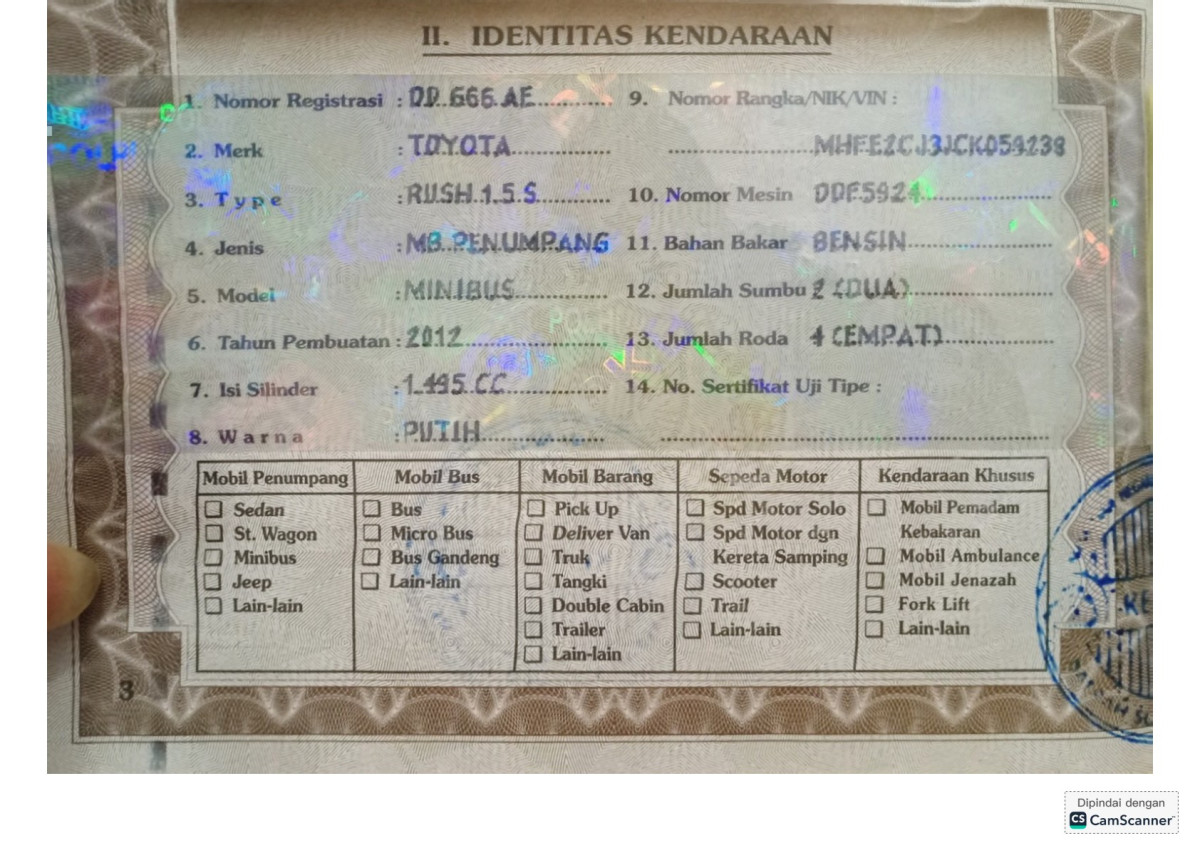 II. IDENTITAS KENDARAAN
1. Nomor Registrasi : DD 666 AE
2. Merk : TOYOTA
3. Type : RUSH 1.5 S
4. Jenis : MB. PENUMPANG
5. Model : MINIBUS
6. Tahun Pembuatan : 2012
7. Isi Silinder : 1.495 CC
8. Warna : PUTIH
9. Nomor Rangka/NIK/VIN :
10. Nomor Mesin
11. Bahan Bakar BENSIN
12. Jumlah Sumbu 2 (DUA)
13. Jumlah Roda 4 (EMPAT)
14. No. Sertifikat Uji Tipe :
Mobil Penumpang
Sedan
St. Wagon
Minibus
Jeep
Lain-lain
Mobil Bus
Bus
Micro Bus
Bus Gandeng
Lain-lain
Mobil Barang
Pick Up
Deliver Van
Truk
Tangki
Double Cabin
Trailer
Lain-lain
Sepeda Motor
Spd Motor Solo
Spd Motor dgn
Kereta Samping
Scooter
Trail
Lain-lain
Kendaraan Khusus
Mobil Pemadam
Kebakaran
Mobil Ambulance
Mobil Jenazah
Fork Lift
Lain-lain
3
Dipindai dengan
CS CamScanner